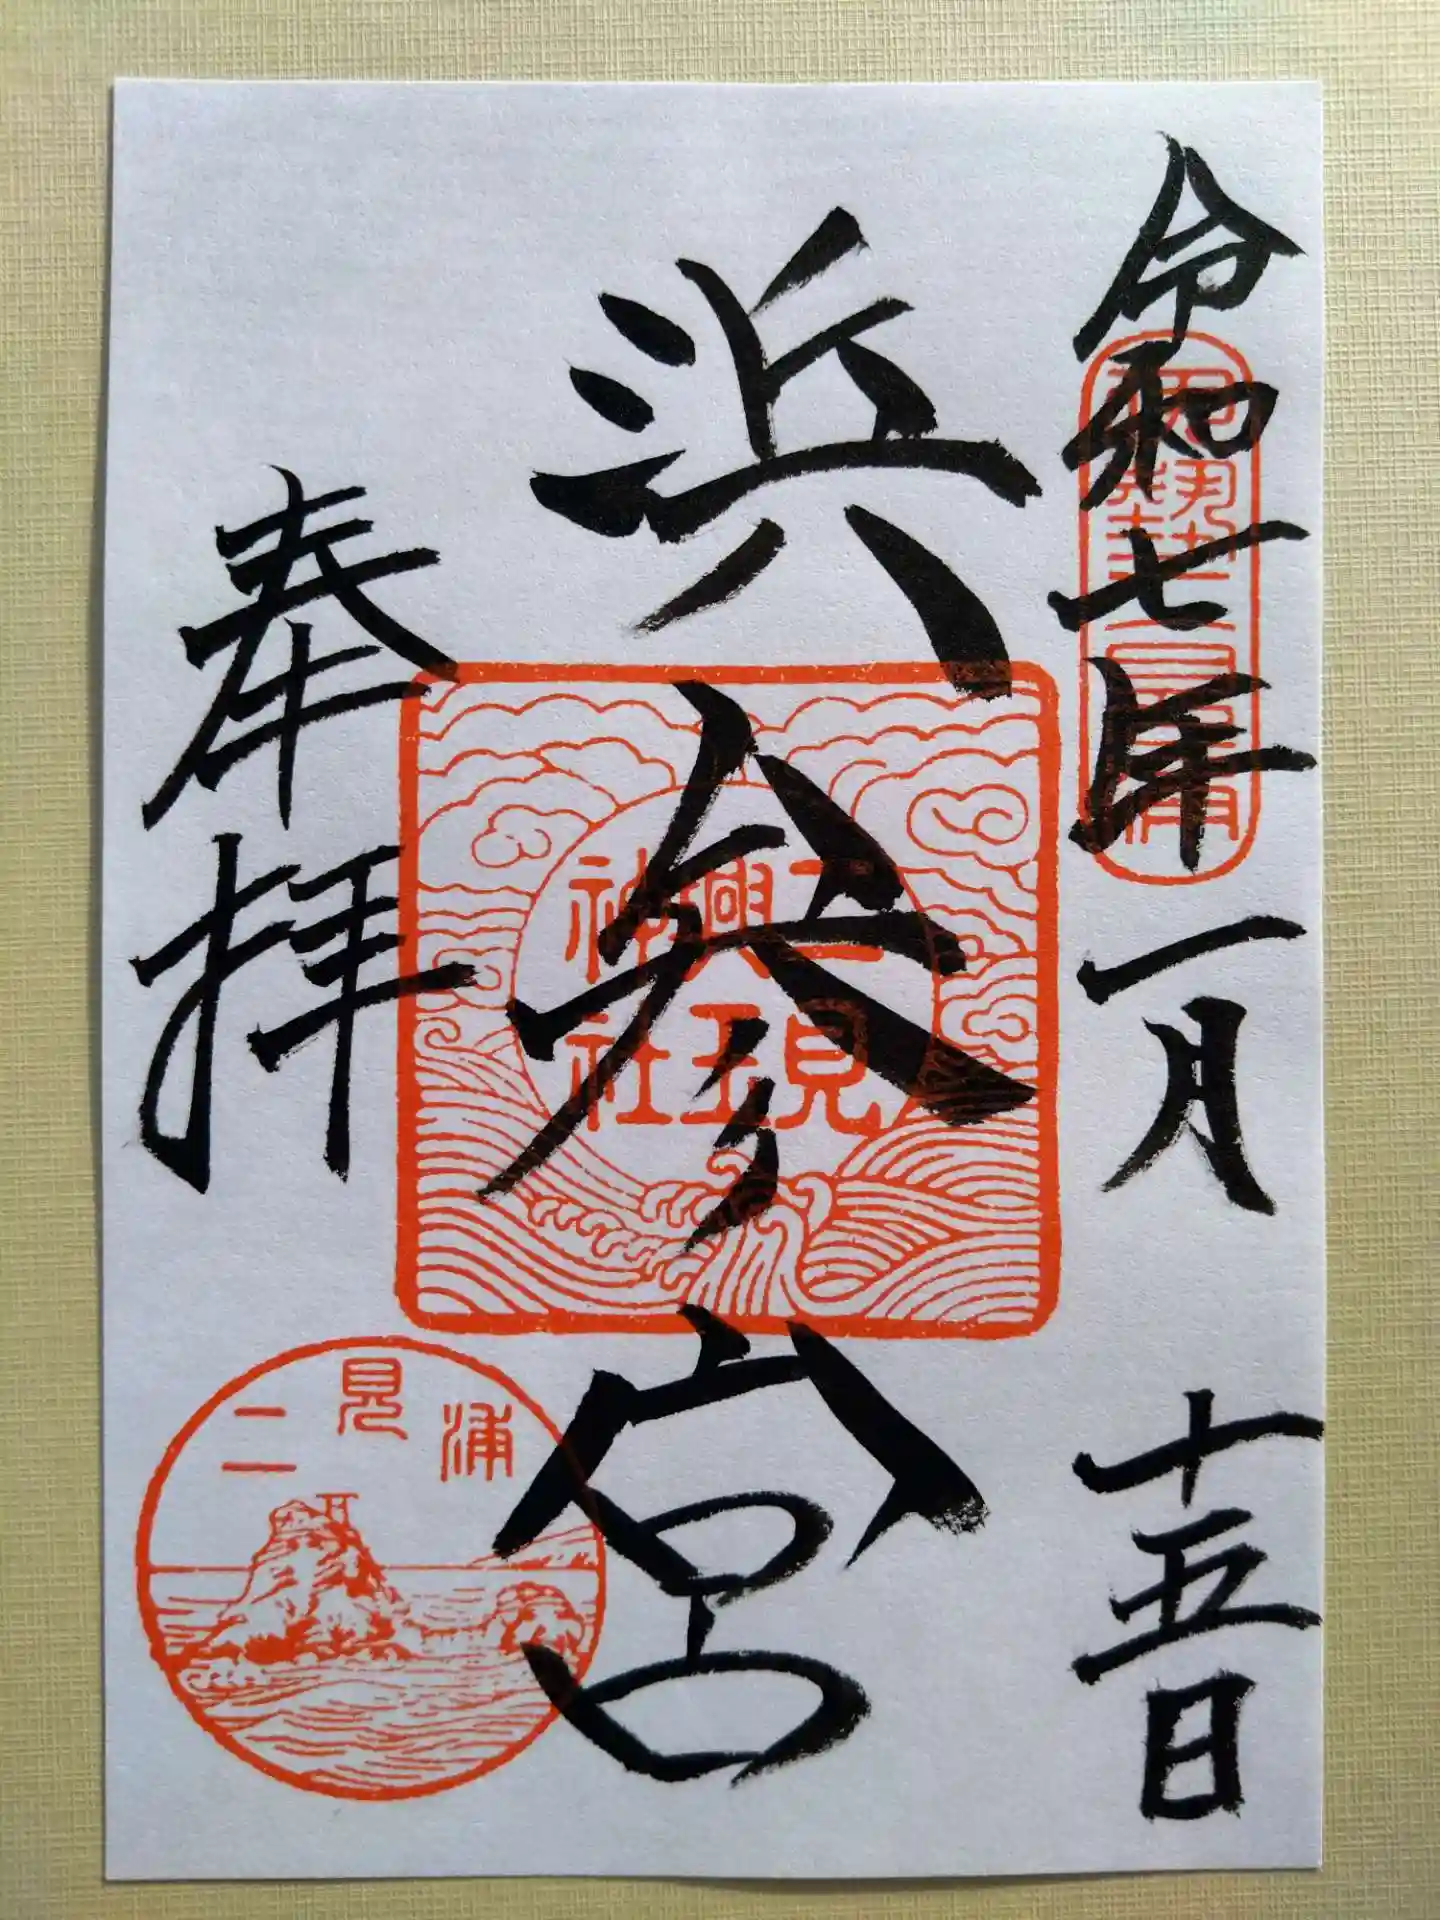 令和七年一月十五日
伊勢二見浦
浜参宮
二見興玉神社
奉拝
二見浦